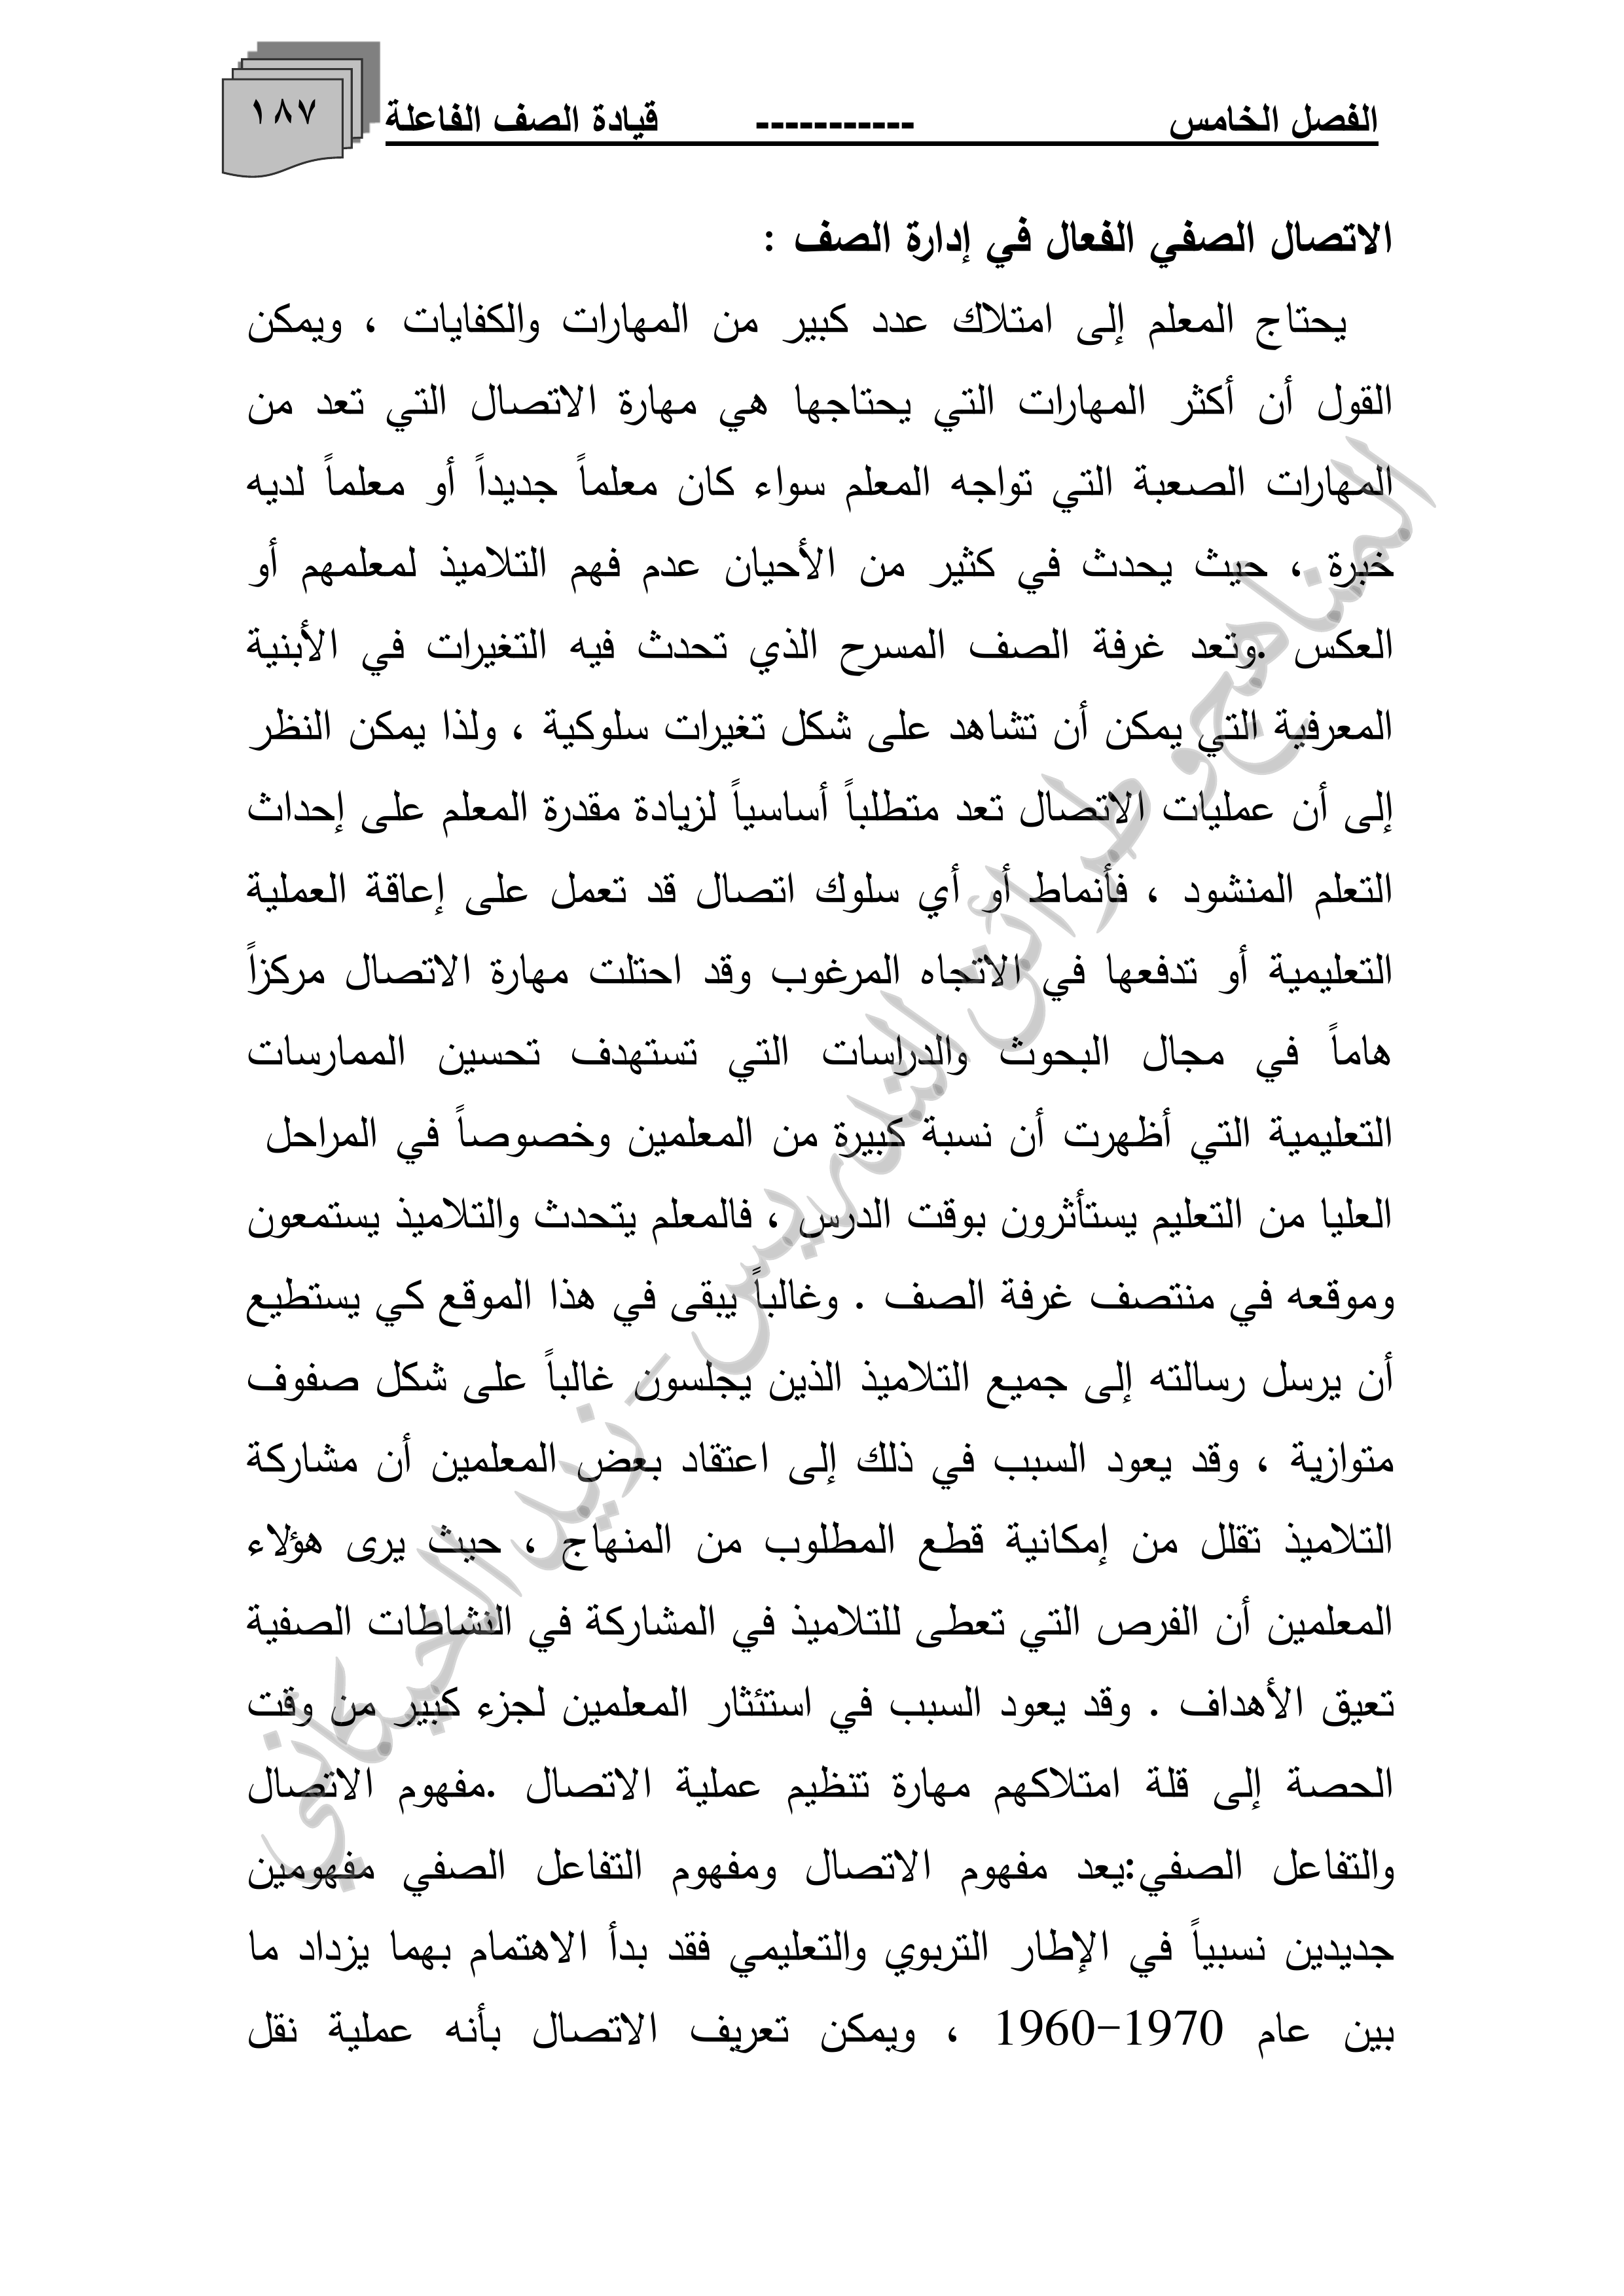 الفصل الخامس ----------- قيادة الصف الفاعلة
١٨٧
الاتصال الصفي الفعال في إدارة الصف :
يحتاج المعلم إلى امتلاك عدد كبير من المهارات والكفايات ، ويمكن
القول أن أكثر المهارات التي يحتاجها هي مهارة الاتصال التي تعد من
المهارات الصعبة التي تواجه المعلم سواء كان معلماً جديداً أو معلماً لديه
خبرة ، حيث يحدث في كثير من الأحيان عدم فهم التلاميذ لمعلمهم أو
العكس .وتعد غرفة الصف المسرح الذي تحدث فيه التغيرات في الأبنية
المعرفية التي يمكن أن تشاهد على شكل تغيرات سلوكية ، ولذا يمكن النظر
إلى أن عمليات الاتصال تعد متطلباً أساسياً لزيادة مقدرة المعلم على إحداث
التعلم المنشود ، فأنماط أو أي سلوك اتصال قد تعمل على إعاقة العملية
التعليمية أو تدفعها في الاتجاه المرغوب وقد احتلت مهارة الاتصال مركزاً
هاماً في مجال البحوث والدراسات التي تستهدف تحسين الممارسات
التعليمية التي أظهرت أن نسبة كبيرة من المعلمين وخصوصاً في المراحل
العليا من التعليم يستأثرون بوقت الدرس ، فالمعلم يتحدث والتلاميذ يستمعون
وموقعه في منتصف غرفة الصف . وغالباً يبقى في هذا الموقع كي يستطيع
أن يرسل رسالته إلى جميع التلاميذ الذين يجلسون غالباً على شكل صفوف
متوازية ، وقد يعود السبب في ذلك إلى اعتقاد بعض المعلمين أن مشاركة
التلاميذ تقلل من إمكانية قطع المطلوب من المنهاج ، حيث يرى هؤلاء
المعلمين أن الفرص التي تعطى للتلاميذ في المشاركة في النشاطات الصفية
تعيق الأهداف . وقد يعود السبب في استئثار المعلمين لجزء كبير من وقت
الحصة إلى قلة امتلاكهم مهارة تنظيم عملية الاتصال .مفهوم الاتصال
والتفاعل الصفي:يعد مفهوم الاتصال ومفهوم التفاعل الصفي مفهومين
جديدين نسبياً في الإطار التربوي والتعليمي فقد بدأ الاهتمام بهما يزداد ما
بين عام 1970-1960 ، ويمكن تعريف الاتصال بأنه عملية نقل
المناهج وطرائق التدريس - زيد الخيكاني